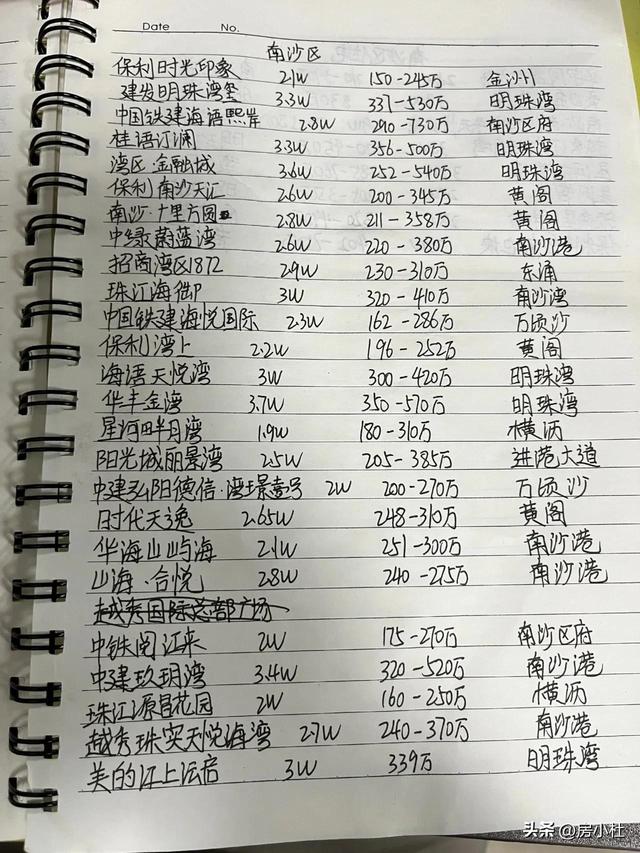 Date No.
南沙区
保利时光印象 2.1W 150-245万 金洲
建发明珠湾玺 3.3W 337-530万 明珠湾
中国铁建海语熙岸 2.8W 290-730万 南沙区府
桂语汀澜 3.3W 356-500万 明珠湾
湾区·金融城 3.6W 252-540万 明珠湾
保利南沙天汇 2.6W 200-345万 黄阁
南沙·十里方圆 2.8W 211-358万 黄阁
中绿蔚蓝湾 2.6W 220-380万 南沙港
招商湾区1872 2.9W 230-310万 东涌
珠江海御 3W 320-410万 南沙湾
中国铁建海悦国际 2.3W 162-286万 万顷沙
保利湾上 2.2W 196-252万 黄阁
海语天悦湾 3W 300-420万 明珠湾
华丰金湾 3.7W 350-570万 明珠湾
星河半月湾 1.9W 180-310万 横沥
阳光城丽景湾 2.5W 205-385万 进港大道
中建弘阳德信·湾璟壹号 2W 200-270万 万顷沙
时代天逸 2.65W 248-310万 黄阁
华海山屿海 2.1W 251-300万 南沙港
山海·合悦 2.8W 240-275万 南沙港
越秀国际总部广场
中铁阅江来 2W 175-270万 南沙区府
中建玖玥湾 3.4W 320-520万 南沙港
珠江源昌花园 2W 160-250万 横沥
越秀珠实天悦海湾 2.7W 240-370万 南沙港
美的江上沄启 3W 339万 明珠湾
头条 @房小杜